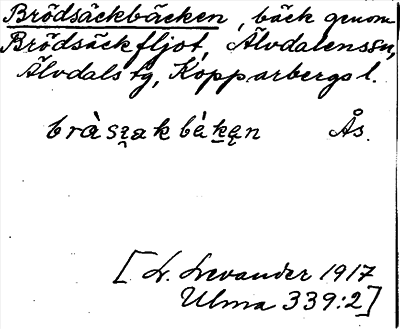 Brödsäckbäcken, bäck genom
Brödsäckfljot, Älvdalenssn,
Älvdals tg, Kopparbergs l.
bràsʒakbèkęn Ås.
[L. Levander 1917
Ulma 339:2]